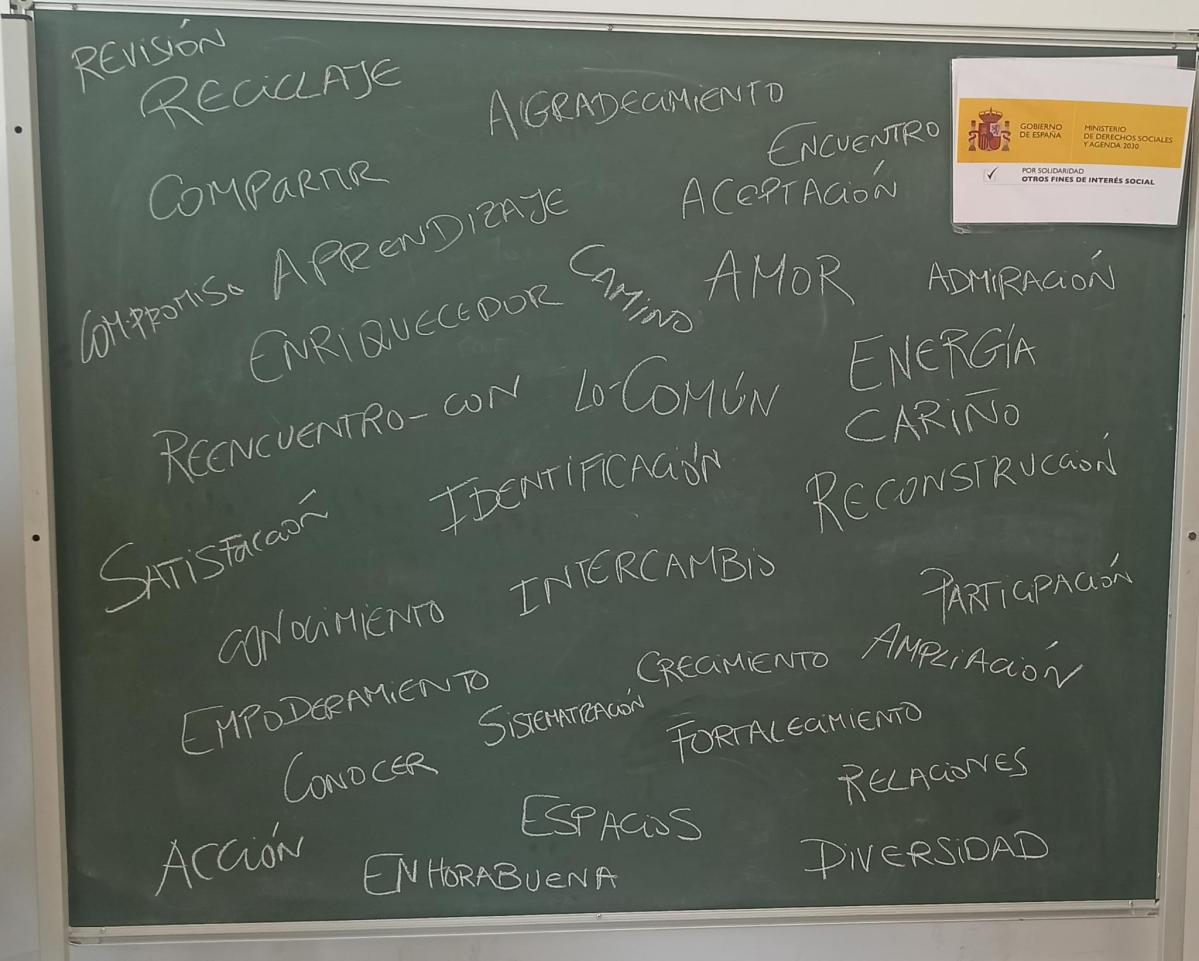 REVISIÓN
RECICLAJE
AGRADECIMIENTO
ENCUENTRO
GOBIERNO
DE ESPAÑA
MINISTERIO
DE DERECHOS SOCIALES
Y AGENDA 2030
POR SOLIDARIDAD
OTROS FINES DE INTERÉS SOCIAL
COMPARTIR
ACEPTACIÓN
APRENDIZAJE
COMPROMISO
CAMINO
AMOR
ADMIRACIÓN
ENRIQUECEDOR
ENERGÍA
REENCUENTRO-CON LO-COMÚN
CARIÑO
IDENTIFICACIÓN
RECONSTRUCCIÓN
SATISFACCIÓN
INTERCAMBIO
PARTICIPACIÓN
CONOCIMIENTO
CRECIMIENTO
AMPLIACIÓN
EMPODERAMIENTO
SISTEMATIZACIÓN
FORTALECIMIENTO
CONOCER
RELACIONES
ESPACIOS
ACCIÓN
ENHORABUENA
DIVERSIDAD